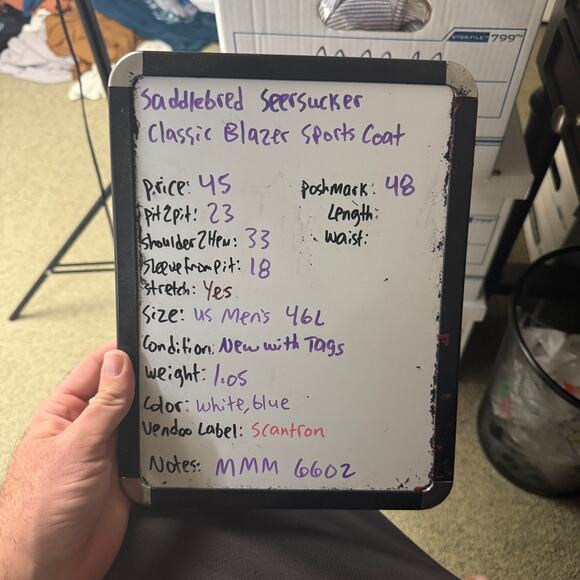 Saddlebred Seersucker
Classic Blazer Sports Coat
price: 45
poshmark: 48
pit2pit: 23
Length:
shoulder2Hem: 33
waist:
sleevefrompit: 18
stretch: Yes
Size: US Men's 46L
Condition: New with Tags
weight: 1.05
Color: white, blue
Vendoo Label: Scantron
Notes: MMM 6602
STOR/FILE™ 799™